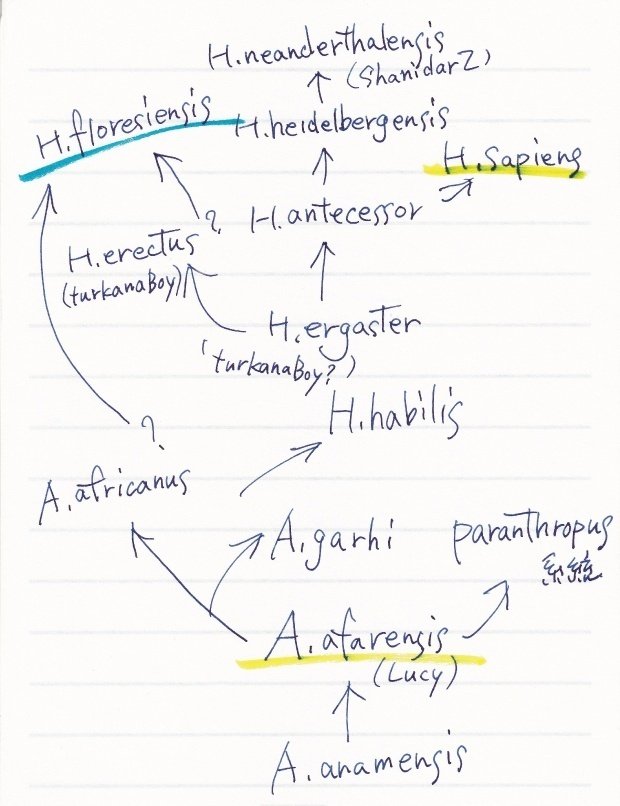 H.neanderthalensis
(ShanidarZ)
H.floresiensis
H.heidelbergensis
H.sapiens
?
H.antecessor
H.erectus
(turkanaBoy)
H.ergaster
(turkanaBoy?)
H.habilis
?
A.africanus
A.garhi
paranthropus
系統
A.afarensis
(Lucy)
A.anamensis